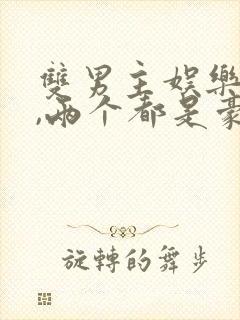 雙男主娛樂
,兩个都是豪
旋轉的舞步